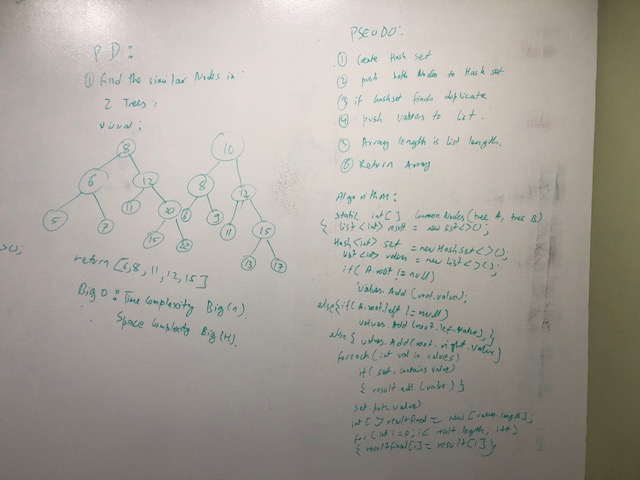 PD:
① find the similar Nodes in
2 Trees:
visual:
8
6
12
5
7
11
20
15
22
10
8
12
6
9
11
15
13
17
return [6,8,11,12,15]
Big O: Time Complexity Big(n)
Space Complexity Big(H)
>();
PSEUDO:
① Create Hash set
② push both Nodes to Hash set
③ if hashset finds duplicate
④ push values to List.
⑤ Array length is list length.
⑥ Return Array
Algorithm:
static int[] CommonNodes(tree A, tree B)
{ List<int> result = new List<>();
Hash<int> set = new HashSet<>();
List<int> values = new List<>();
if( A.root != null)
values.Add(root.value);
else{if(A.root.left != null)
values.Add(root.left.value);}
else{ values.Add(root.right.value
foreach(int val in values)
if( set.contains value)
{ result.add(value)}}
set.put(value)
int[] resultfinal = new [values.length];
for(int i=0; i< result.length; i++)
{ resultfinal[i]= result[i]}